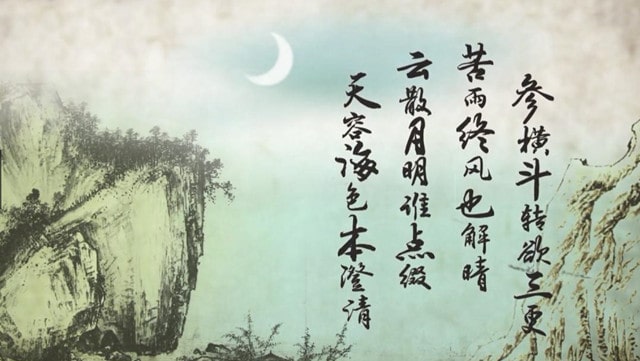 参横斗转欲三更
苦雨终风也解晴
云散月明谁点缀
天容海色本澄清